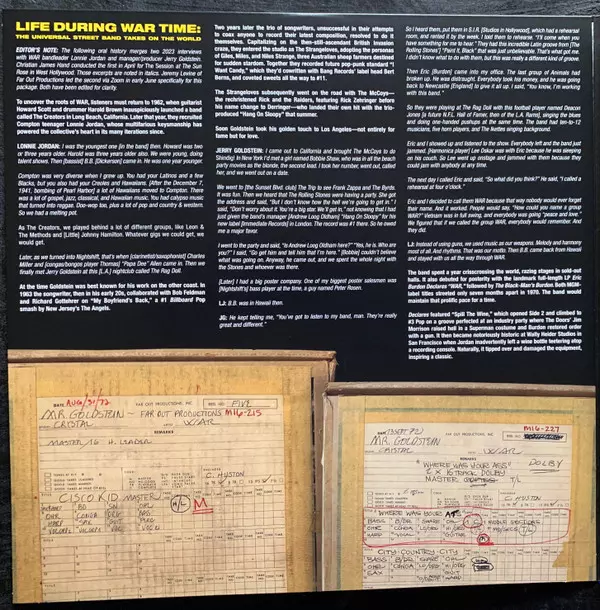 LIFE DURING WAR TIME:
THE UNIVERSAL STREET BAND TAKES ON THE WORLD
EDITOR'S NOTE: The following oral history merges two 2023 interviews
with WAR bandleader Lonnie Jordan and manager/producer Jerry Goldstein.
Christian James Hand conducted the first in April for The Session at The Sun
Rose in West Hollywood. Those excerpts are noted in italics. Jeremy Levine of
Far Out Productions led the second via Zoom in early June specifically for this
package. Both have been edited for clarity.
To uncover the roots of WAR, listeners must return to 1962, when guitarist
Howard Scott and drummer Harold Brown inauspiciously launched a band
called The Creators in Long Beach, California. Later that year, they recruited
Compton teenager Lonnie Jordan, whose multifarious keysmanship has
powered the collective's heart in its many iterations since.
LONNIE JORDAN: I was the youngest one [in the band] then. Howard was two
or three years older. Harold was three years older also. We were young, doing
talent shows. Then [bassist] B.B. [Dickerson] came in. He was one year younger.
Compton was very diverse when I grew up. You had your Latinos and a few
Blacks, but you also had your Creoles and Hawaiians. [After the December 7,
1941, bombing of Pearl Harbor] a lot of Hawaiians moved to Compton. There
was a lot of gospel, jazz, classical, and Hawaiian music. You had calypso music
that turned into reggae. Doo-wop, too, plus a lot of pop and country & western.
So we had a melting pot.
As The Creators, we played behind a lot of different groups, like Leon &
The Methods and [Little] Johnny Hamilton. Whatever gigs we could get, we
would get.
Later, as we turned into Nightshift, that's when [clarinetist/saxophonist] Charles
Miller and [congas/bongos player Thomas] "Papa Dee" Allen came in. Then we
finally met Jerry Goldstein at this [L.A.] nightclub called The Rag Doll.
At the time Goldstein was best known for his work on the other coast. In
1963 the songwriter, then in his early 20s, collaborated with Bob Feldman
and Richard Gottehrer on "My Boyfriend's Back," a #1 Billboard Pop
smash by New Jersey's The Angels.
Two years later the trio of songwriters, unsuccessful in their attempts
to coax anyone to record their latest composition, resolved to do it
themselves. Capitalizing on the then-still-ascendant British Invasion
craze, they entered the studio as The Strangeloves, adopting the personas
of Giles, Miles, and Niles Strange, three Australian sheep farmers destined
for sudden stardom. Together they recorded future pop-punk standard "I
Want Candy," which they'd cowritten with Bang Records' label head Bert
Berns, and coveted sweets all the way to #11.
The Strangeloves subsequently went on the road with The McCoys—
the rechristened Rick and the Raiders, featuring Rick Zehringer before
his name change to Derringer—who landed their own hit with the trio-
produced "Hang On Sloopy" that summer.
Soon Goldstein took his golden touch to Los Angeles—not entirely for
fame but for love.
JERRY GOLDSTEIN: I came out to California and brought The McCoys to do
Shindig! In New York I'd met a girl named Bobbie Shaw, who was in all the beach
party movies as the blonde, the second lead. I took her number, went out, called
her, and we went out on a date.
We went to [the Sunset Blvd. club] The Trip to see Frank Zappa and The Byrds.
It was fun. Then we heard that The Rolling Stones were having a party. She got
the address and said, "But I don't know how the hell we're going to get in." I
said, "Don't worry about it. You're a big star. We'll get in," not knowing that I had
just given the band's manager [Andrew Loog Oldham] "Hang On Sloopy" for his
new label [Immediate Records] in London. The record was #1 there. So he owed
me a major favor.
I went to the party and said, "Is Andrew Loog Oldham here?" "Yes, he is. Who are
you?" I said, "Go get him and tell him that I'm here." [Bobbie] couldn't believe
what was going on. Anyway, he came out, and we spent the whole night with
the Stones and whoever was there.
[Later] I had a big poster company. One of my biggest poster salesmen was
[Nightshift's] bass player at the time, a guy named Peter Rosen.
LJ: B.B. was in Hawaii then.
JG: He kept telling me, "You've got to listen to my band, man. They're really
great and different."
So I heard them, put them in S.I.R. [Studios in Hollywood], which had a rehearsal
room, and rented it by the week. I told them to rehearse: "I'll come when you
have something for me to hear." They had this incredible Latin groove from [The
Rolling Stones'] "Paint It, Black" that was just unbelievable. That's what got me.
I didn't know what to do with them, but this was really a different kind of groove.
Then Eric [Burdon] came into my office. The last group of Animals had
broken up. He was distraught. Everybody took his money, and he was going
back to Newcastle [England] to give it all up. I said, "You know, I'm working
with this band."
So they were playing at The Rag Doll with this football player named Deacon
Jones (a future N.F.L. Hall of Famer, then of the L.A. Rams), singing the blues
and doing one-handed pushups at the same time. The band had ten-to-12
musicians, five horn players, and The Ikettes singing background.
Eric and I showed up and listened to the show. Everybody left and the band just
jammed. [Harmonica player] Lee Oskar was with Eric because he was sleeping
on his couch. So Lee went up onstage and jammed with them because they
could jam with anybody at any time.
The next day I called Eric and said, "So what did you think?" He said, "I called a
rehearsal at four o'clock."
Eric and I decided to call them WAR because that way nobody would ever forget
their name. And it worked. People would say, "How could you name a group
WAR?" Vietnam was in full swing, and everybody was going "peace and love."
We figured that if we called the group WAR, everybody would remember. And
they did.
LJ: Instead of using guns, we used music as our weapons. Melody and harmony
most of all. And rhythms. That was our motto. Then B.B. came back from Hawaii
and stayed with us all the way through WAR.
The band spent a year crisscrossing the world, razing stages in sold-out
halls. It also debuted for posterity with the landmark full-length LP Eric
Burdon Declares "WAR," followed by The Black-Man's Burdon. Both MGM-
label titles streeted only seven months apart in 1970. The band would
maintain that prolific pace for a time.
Declares featured "Spill The Wine," which opened Side 2 and climbed to
#3 Pop on a groove perfected at an industry party where The Doors' Jim
Morrison raised hell in a Superman costume and Burdon restored order
with a gun. It then became notoriously historic at Wally Heider Studios in
San Francisco when Jordan inadvertently left a wine bottle teetering atop
a recording console. Naturally, it tipped over and damaged the equipment,
inspiring a classic.
DATE AUG/31/72 FAR OUT PRODUCTIONS, INC. REEL NO. FIVE
MR. GOLDSTEIN - FAR OUT PRODUCTIONS M16-215
CRYSTAL WAR
REMARKS
MASTER/16
C. HUSTON
CISCO KID MASTER H/L M
DATE 13 SEPT 72 M16-227
MR. GOLDSTEIN
CRYSTAL WAR
REMARKS
"WHERE WAS YOUR ASS" DOLBY
2 X 16 TRACK DOLBY
MASTER T/L
C. HUSTON
"WHERE WAS YOUR AT"
CITY COUNTRY CITY